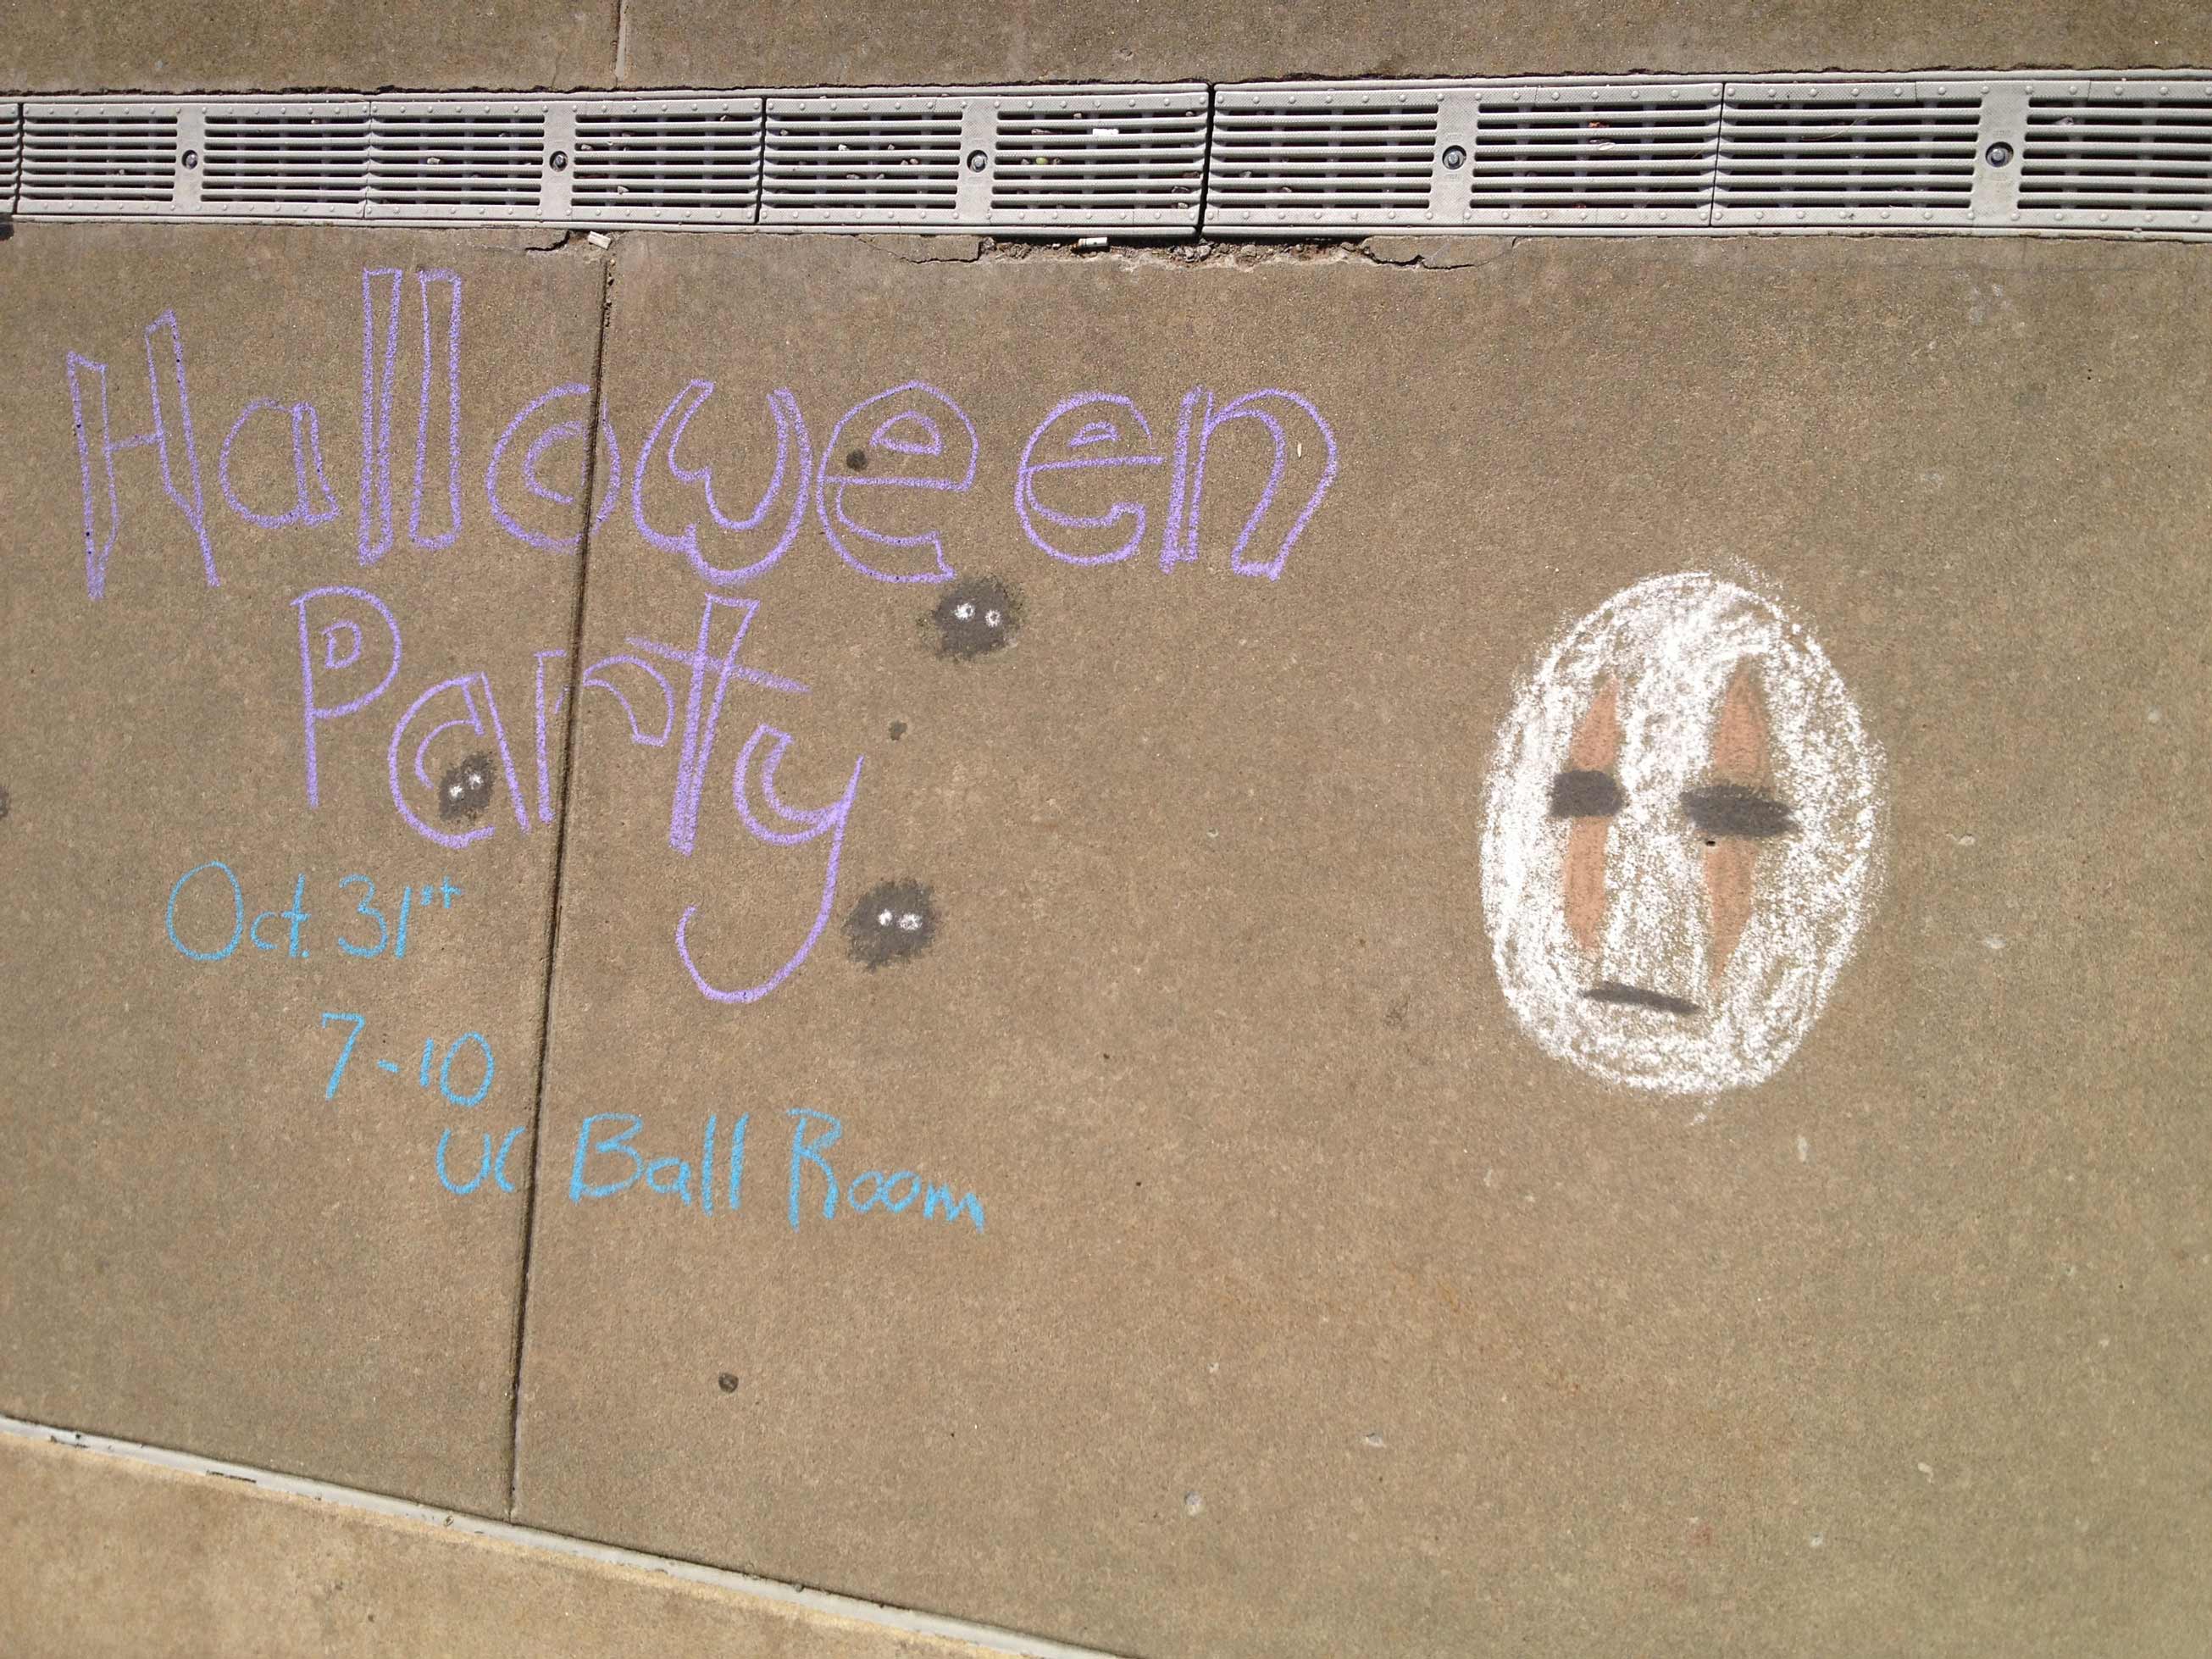 Halloween
Party
Oct. 31st
7-10
UC Ball Room